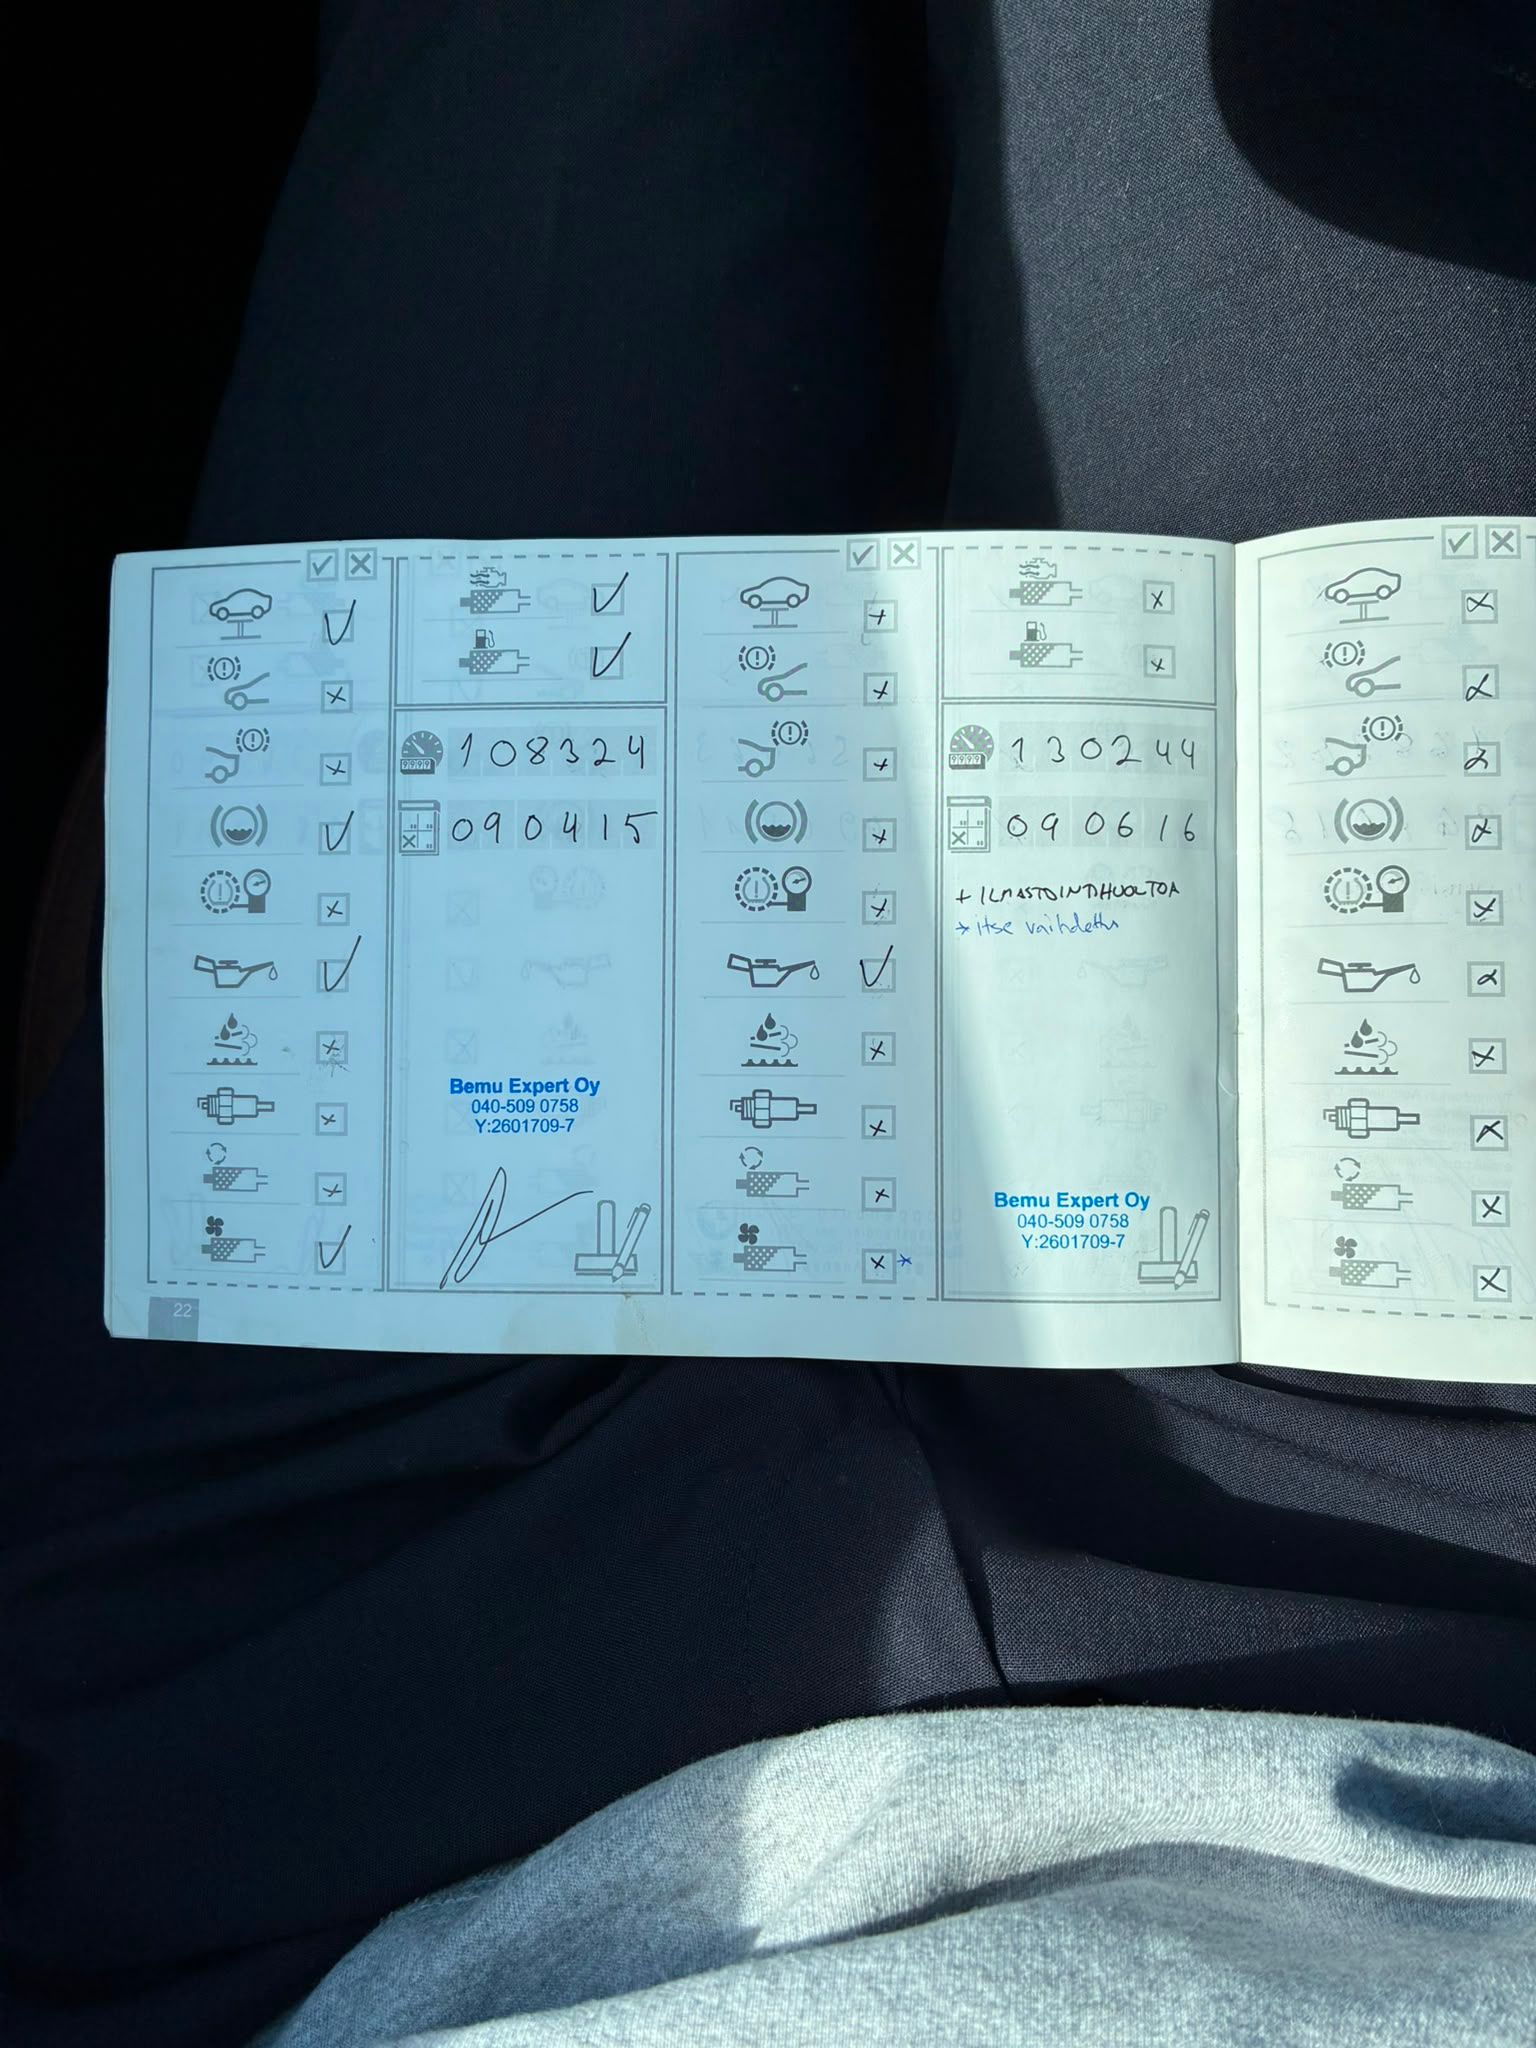 108324
090415
Bemu Expert Oy
040-509 0758
Y:2601709-7
22
130244
090616
+ ILMASTOINTIHUOLTOA
* itse vaihdettu
Bemu Expert Oy
040-509 0758
Y:2601709-7